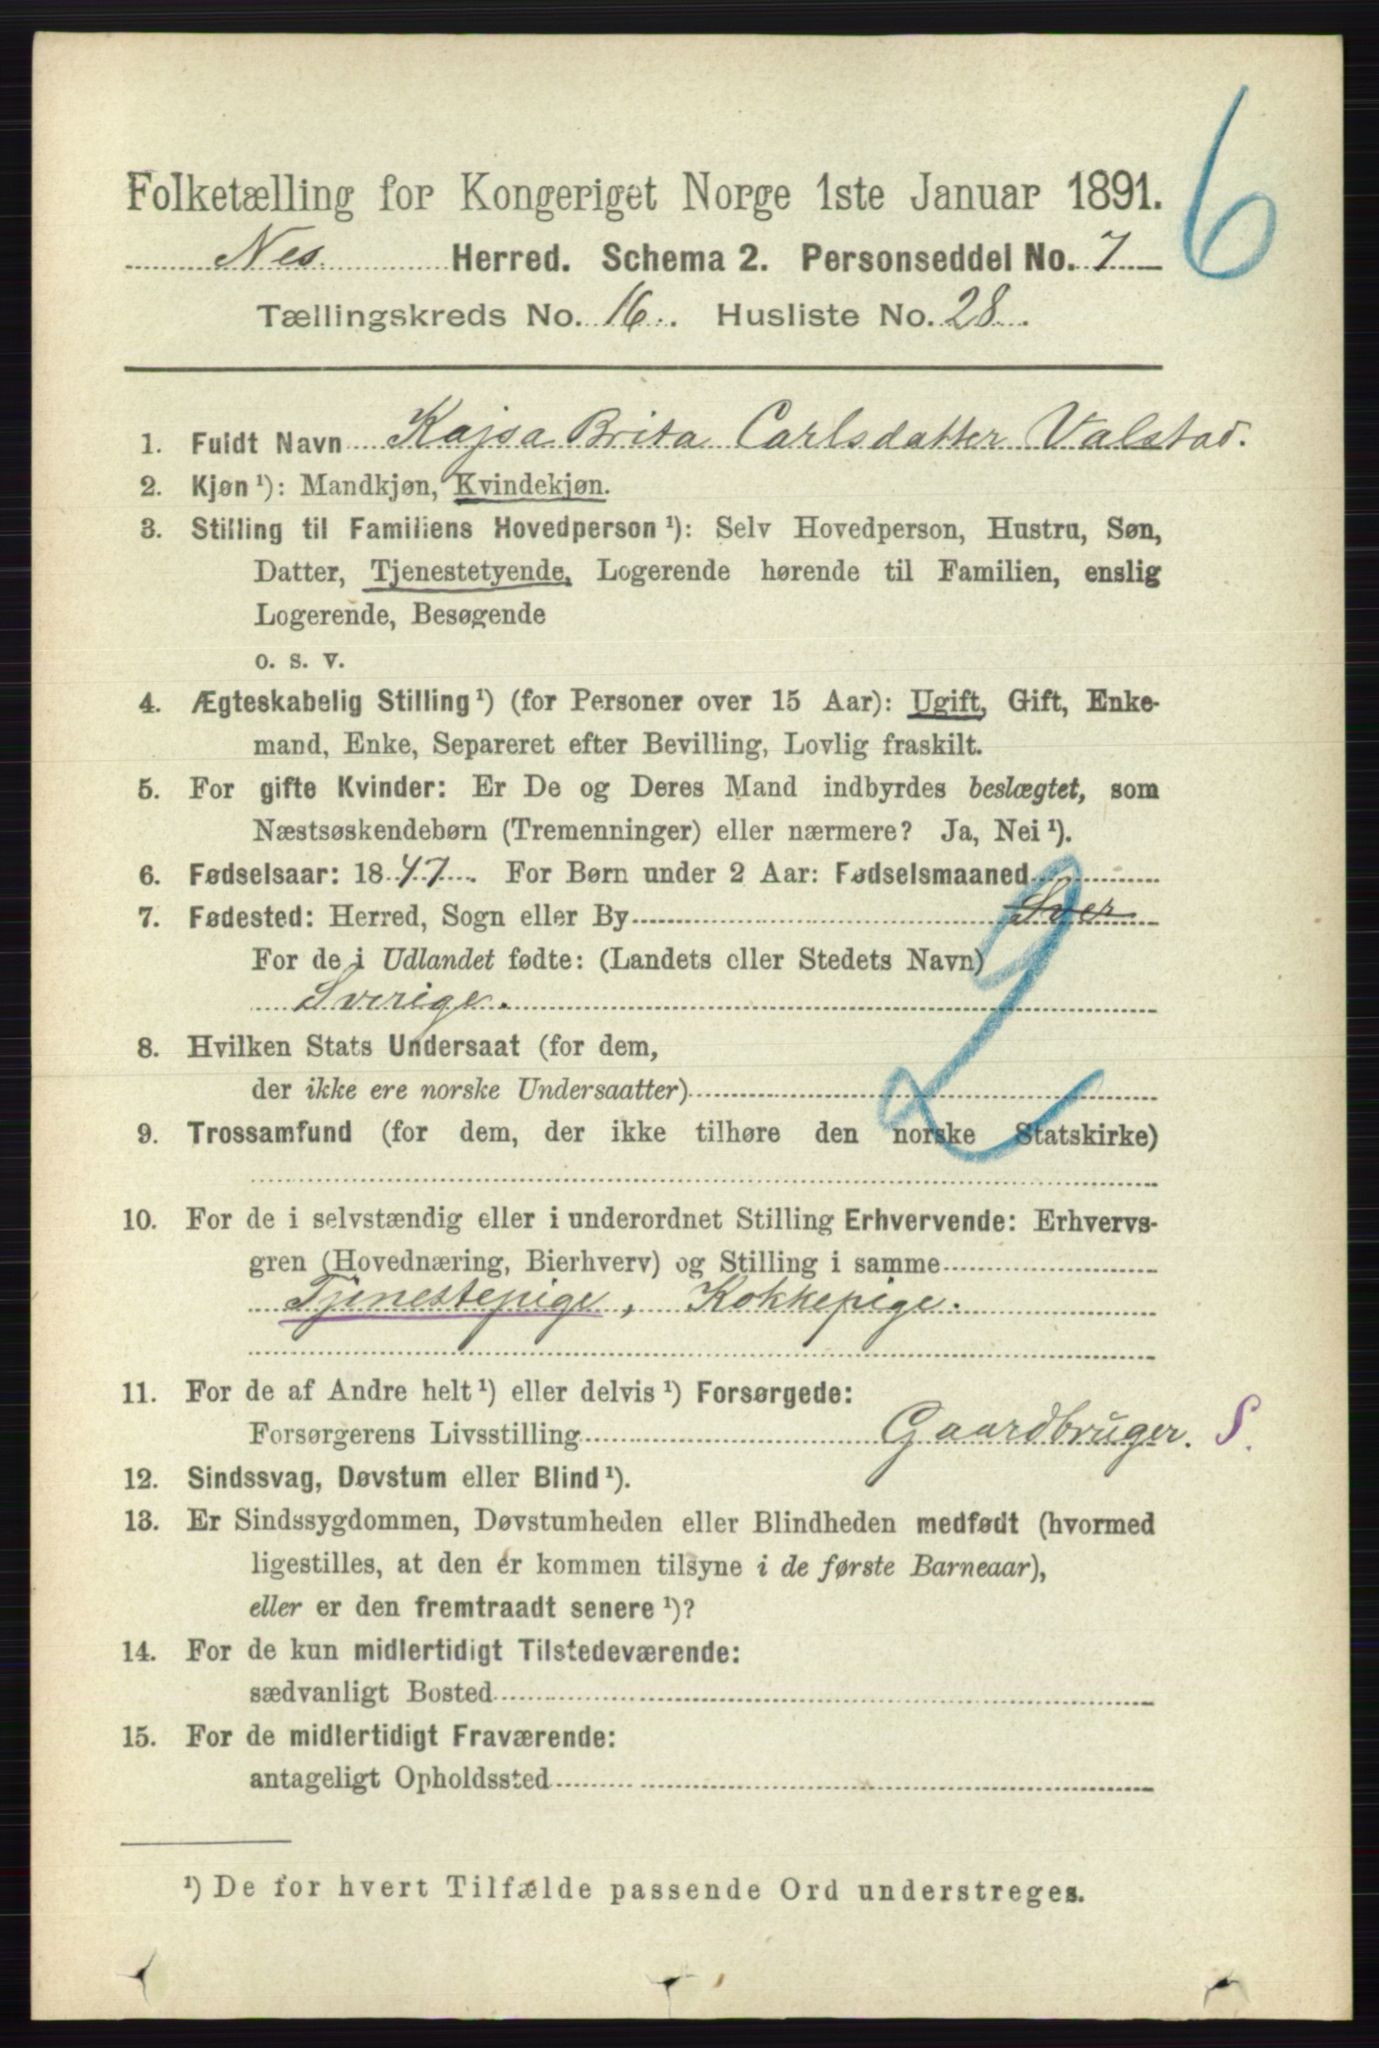 6
Folketælling for Kongeriget Norge 1ste Januar 1891.
Nes Herred. Schema 2. Personseddel No. 7
Tællingskreds No. 16. Husliste No. 28.
1. Fuldt Navn Kajsa Brita Carlsdatter Valstad.
2. Kjøn ¹): Mandkjøn, Kvindekjøn.
3. Stilling til Familiens Hovedperson ¹): Selv Hovedperson, Hustru, Søn,
Datter, Tjenestetyende, Logerende hørende til Familien, enslig
Logerende, Besøgende
o. s. v.
4. Ægteskabelig Stilling ¹) (for Personer over 15 Aar): Ugift, Gift, Enke-
mand, Enke, Separeret efter Bevilling, Lovlig fraskilt.
5. For gifte Kvinder: Er De og Deres Mand indbyrdes beslægtet, som
Næstsøskendebørn (Tremenninger) eller nærmere? Ja, Nei ¹).
6. Fødselsaar: 1847. For Børn under 2 Aar: Fødselsmaaned
7. Fødested: Herred, Sogn eller By Sver
For de i Udlandet fødte: (Landets eller Stedets Navn)
Sverige.
2
8. Hvilken Stats Undersaat (for dem,
der ikke ere norske Undersaatter)
9. Trossamfund (for dem, der ikke tilhøre den norske Statskirke)
10. For de i selvstændig eller i underordnet Stilling Erhvervende: Erhvervs-
gren (Hovednæring, Bierhverv) og Stilling i samme
Tjenestepige, Kokkepige.
11. For de af Andre helt ¹) eller delvis ¹) Forsørgede:
Forsørgerens Livsstilling Gaardbruger. S.
12. Sindssvag, Døvstum eller Blind ¹).
13. Er Sindssygdommen, Døvstumheden eller Blindheden medfødt (hvormed
ligestilles, at den er kommen tilsyne i de første Barneaar),
eller er den fremtraadt senere ¹)?
14. For de kun midlertidigt Tilstedeværende:
sædvanligt Bosted
15. For de midlertidigt Fraværende:
antageligt Opholdssted
¹) De for hvert Tilfælde passende Ord understreges.